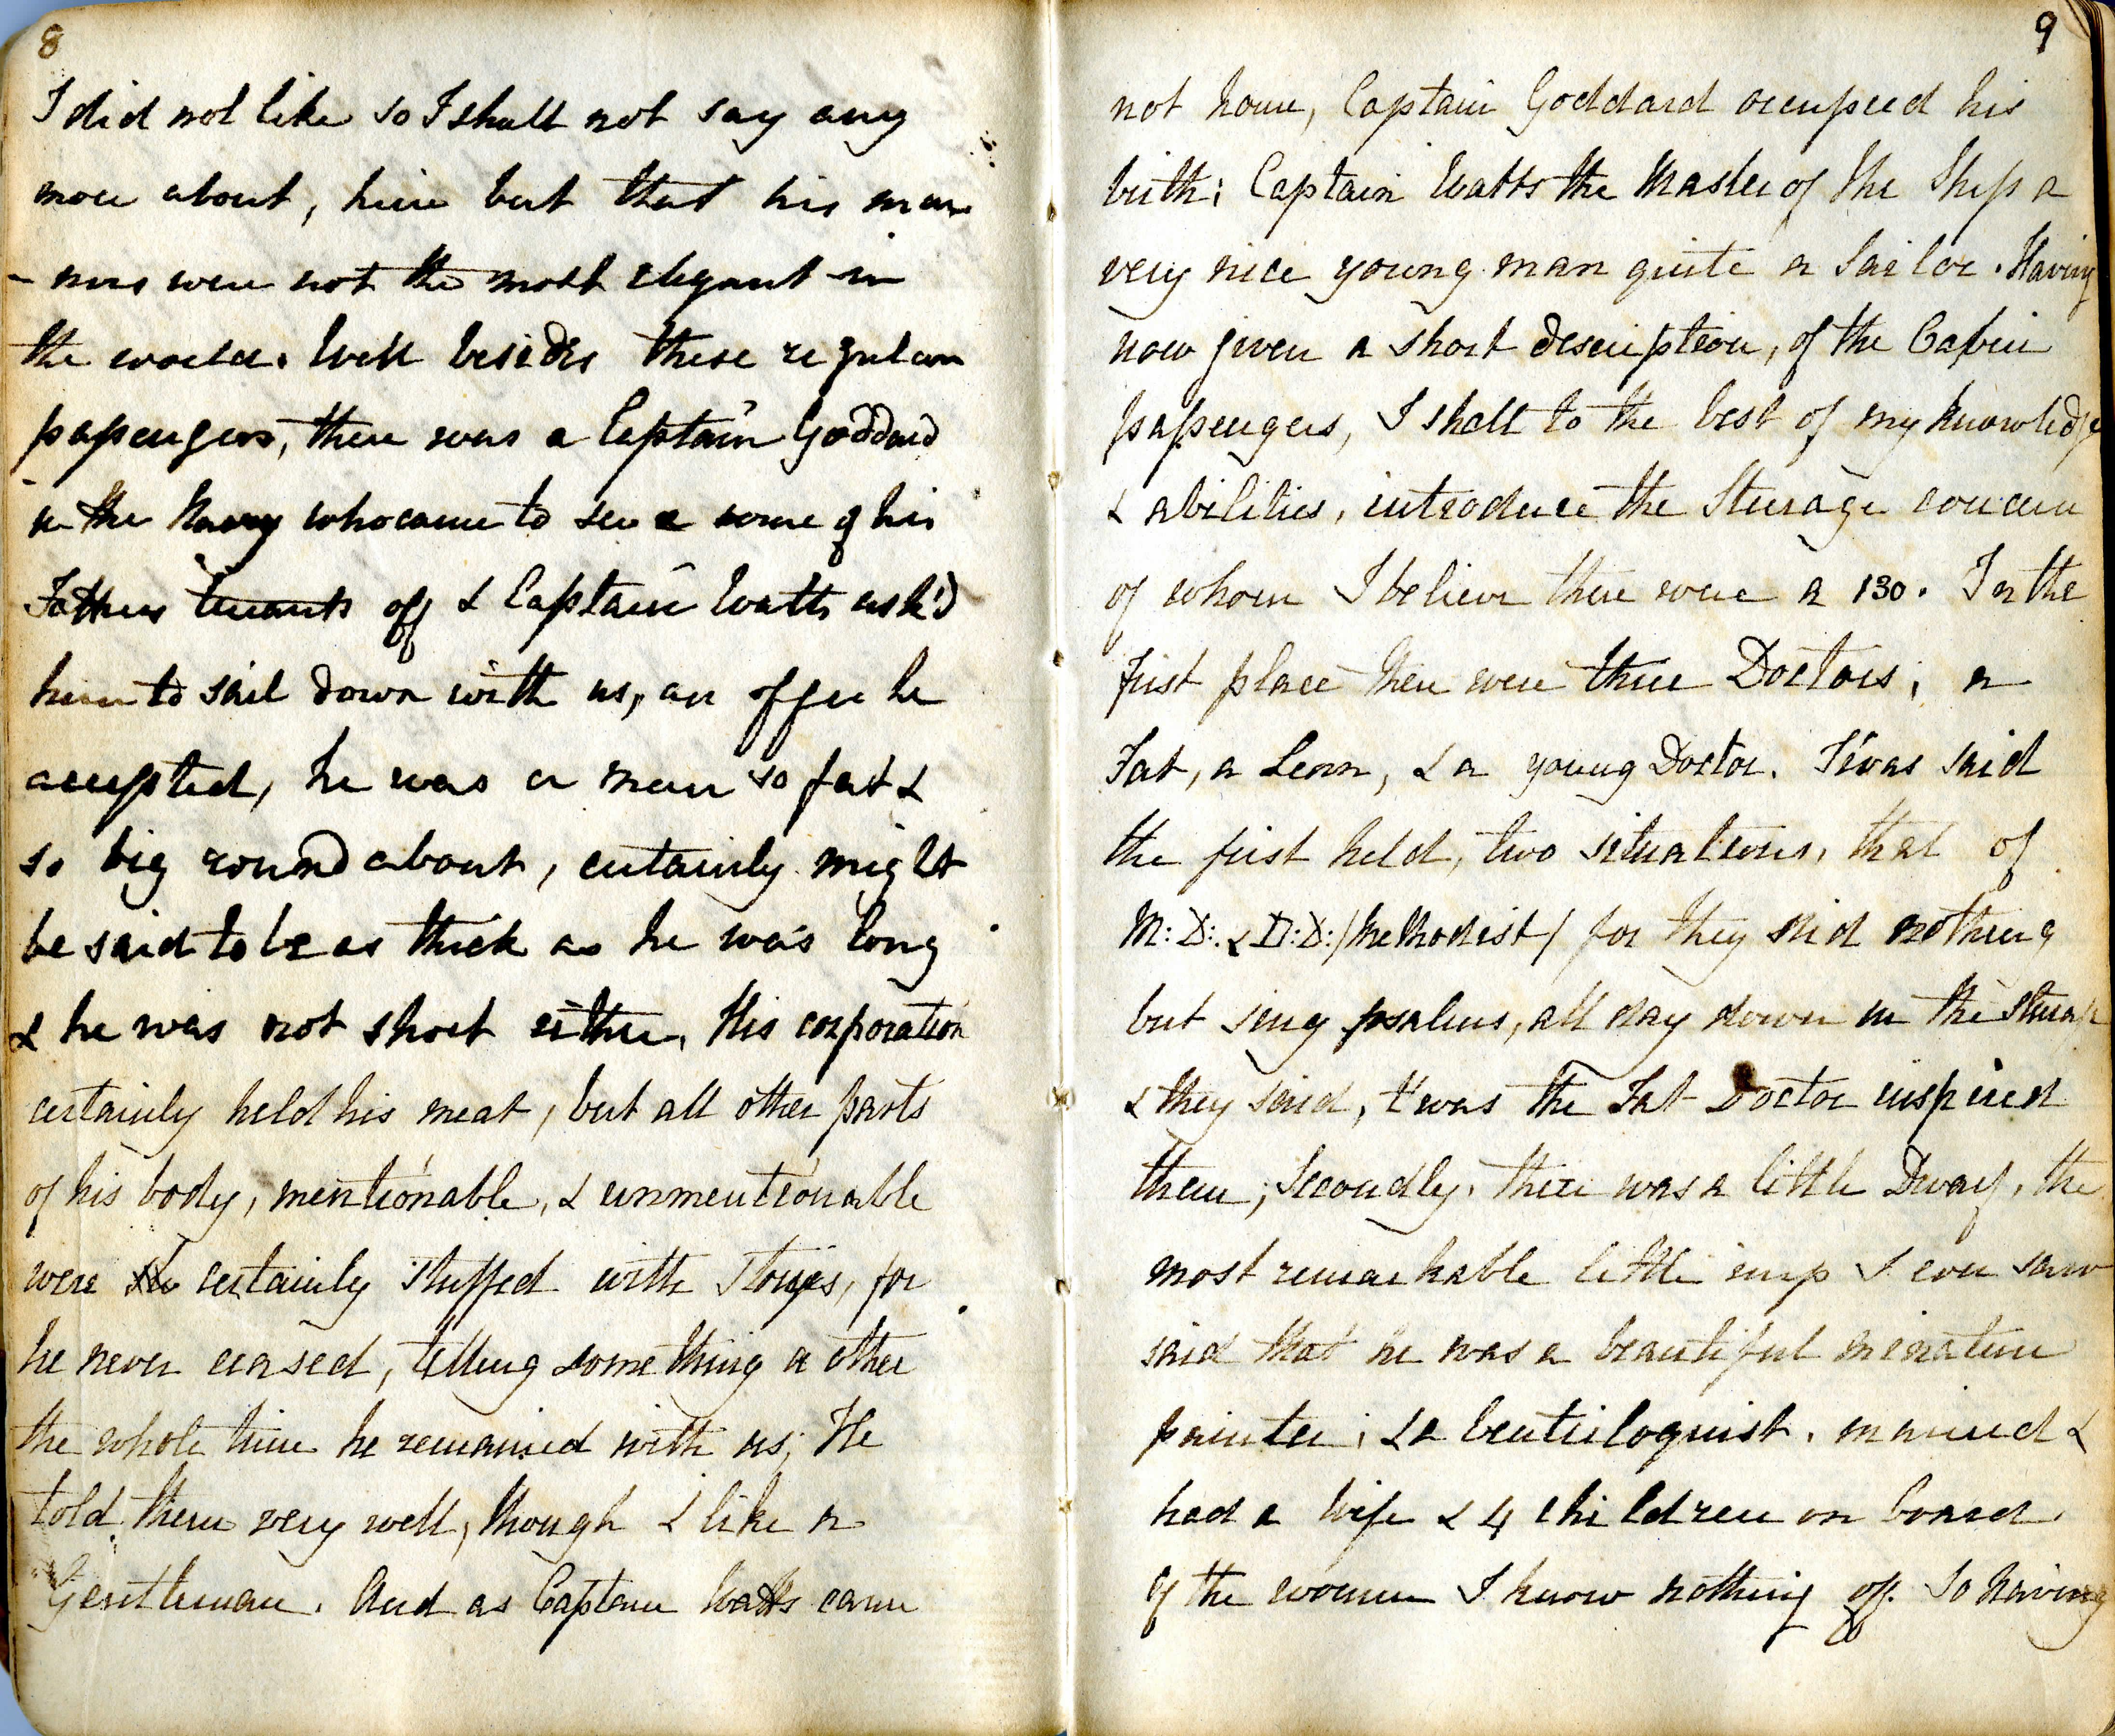 8
I did not like so I shall not say any
more about, him but that his man
- ners were not the most elegant in
the world. Well besides these regular
passengers, there was a Captain Goddard
in the Navy who came to see some of his
Fathers tenants off & Captain Watts ask'd
him to sail down with us, an offer he
accepted, he was a man so fat &
so big round about, certainly might
be said to be as thick as he was long
& he was not short either, His corporation
certainly held his meat, but all other parts
of his body, mentionable, & unmentionable
were certainly stuffed with stories, for
he never ceased, telling something or other
the whole time he remained with us; He
told them very well, though & like a
Gentleman. And as Captain Watts came
9
not home, Captain Goddard occupied his
birth; Captain Watts the Master of the Ship a
very nice young man quite a Sailor. Having
now given a short description, of the Cabin
passengers, I shall to the best of my knowledge
& abilities, introduce the Steerage concern
of whom I believe there were a 130. In the
first place there were three Doctors; a
Fat, a Lean, & a young Doctor. T'was said
the first held, two situations, that of
M:D: & D:D: /Methodist/ for they did nothing
but sing psalms, all day down in the Steerage
& they said, t'was the Fat Doctor inspired
them; Secondly, there was a little Dwarf, the
most remarkable little imp I ever saw
said that he was a beautiful minature
painter; & a Ventriloquist, married &
had a Wife & 4 children on board.
Of the women I know nothing off. So having